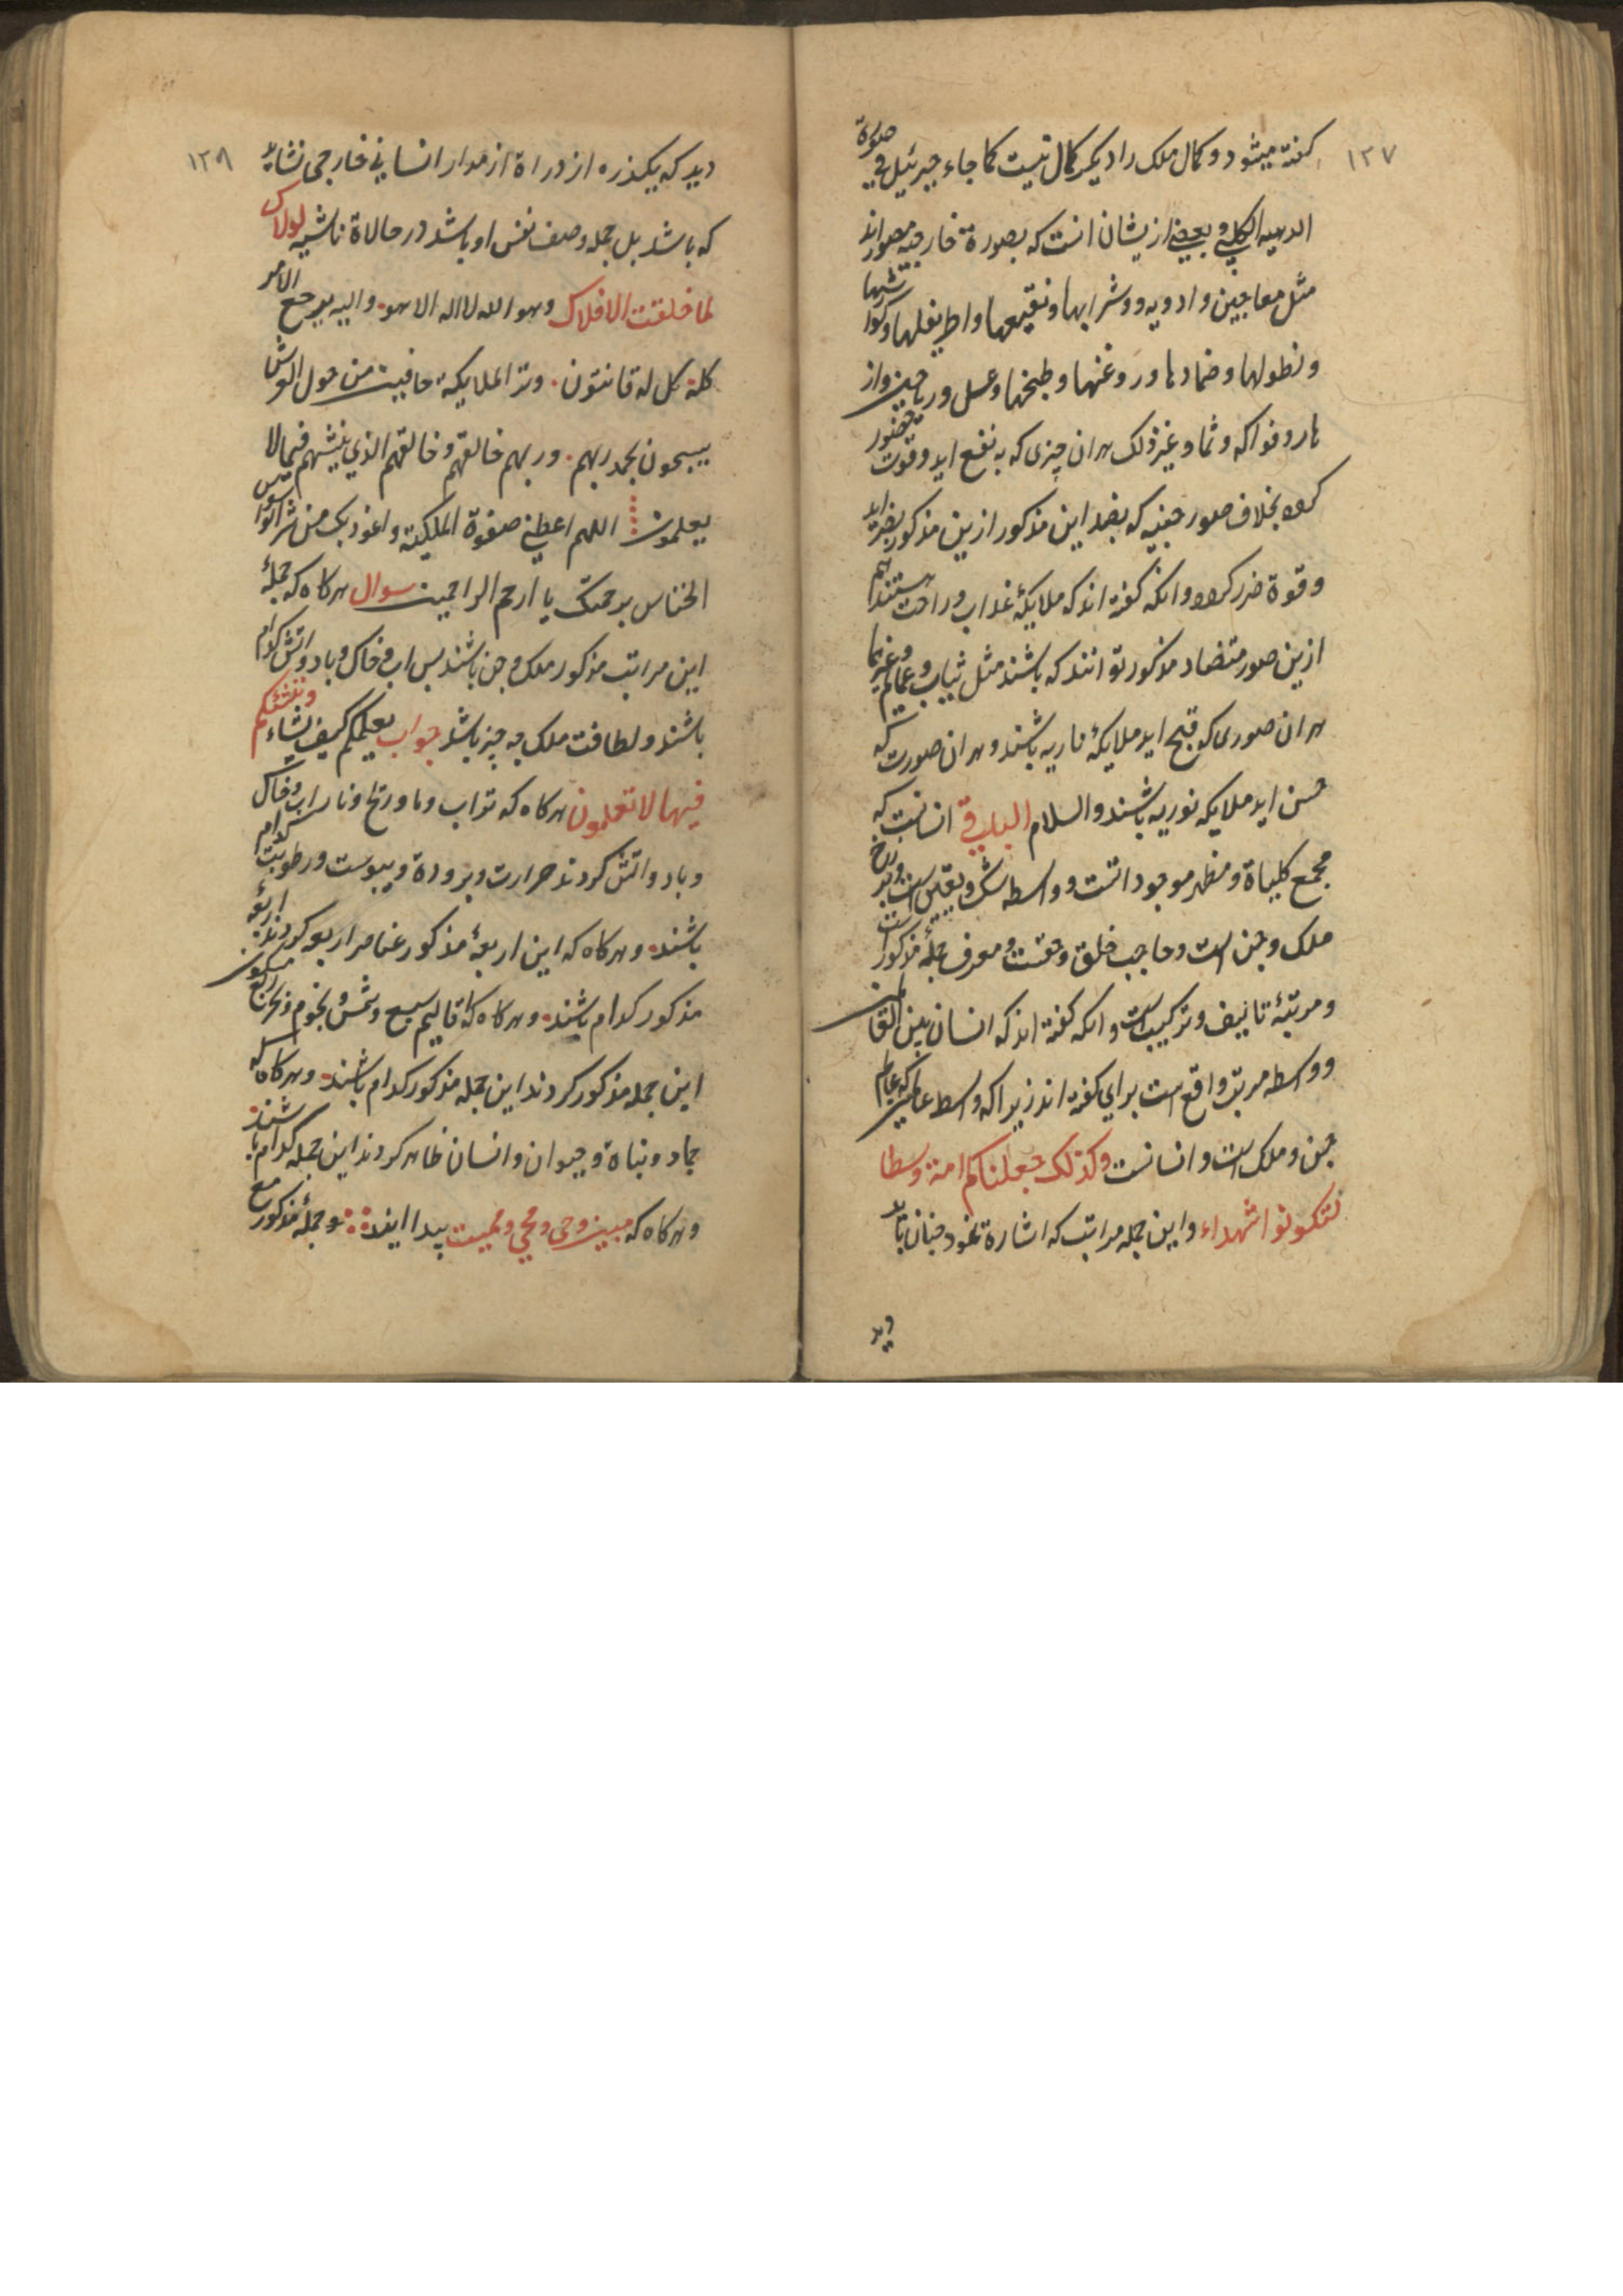 ١٣٧
کفته میشود و کمال ملک را دیکر کمال نیست کما جاء جبرئیل في صورة
الدحیه الکلبي و بعضي ازیشان انست که بصورة خارجیه مصور اند
مثل معاجین و ادویه و شرابها و نقیعها و اطریفلها و کوارشها
و نطولها و ضمادها و روغنها و طبخها و عسل و ریاحین و از
هار و فواکه و ثمار و غیر ذلک هر ان چیزی که به نفع اید و قوت حضور
کرده بخلاف صور جنیه که بضد این مذکور ازین مذکور بضر اید
و قوة ضرر کرده و انکه کفته اند که ملایکهٔ عذاب و راحت هستند هم
ازین صور متضاد مذکور توانند که باشند مثل ثیاب و عمایم و غیرها
هر ان صوری که قبح اید ملایکهٔ ناریه باشند و هر ان صورت که
حسن اید ملایکه نوریه باشند والسلام الباب في انسانست که
مجمع کلیاة و مظهر موجوداتست و واسطه شک و یقین است و برزخ
ملک و جن است و حاجب خلق و حقست و معرف جملهٔ مذکور است
و مرتبهٔ تالیف و ترکیب است و انکه کفته اند که انسان بین القا
و واسطه مرتبه واقع است برای کفته اند زیرا که واسط عالمین که عالم
جن و ملک است و انسانست وکذلک جعلناکم امة وسطا
لتکونوا شهداء و این جمله مراتب که اشارة نمود چنان باید
دید
١٣٨
دید که یکذره از ذراة از مدار انساني خارجی نشاید
که باشد بل جمله وصف نفس او باشد در حالاة ناشیه لولاک
لما خلقت الافلاک وهو الله لا اله الا هو و الیه یرجع الامر
کله کل له قانتون وتر الملایکة حافین من حول العرش
یسبحون بحمد ربهم و ربهم خالقهم و خالقهم الذي ینشیهم فیما لا
یعلمون اللهم اعطني صفوة الملکیته و اعوذ بک من شر الوسواس
الخناس برحمتک یا ارحم الراحمین سوال هرکاه که جملهٔ
این مراتب مذکور ملک و جن باشند بس اب و خاک و باد و اتش کدام
باشند و لطافت ملک چه چیز باشد جواب یعلمکم کیف یشاء وننشئکم
فیما لا تعلمون هرکاه که تراب و ما و ریح و نار اب و خاک
و باد و اتش کردند حرارت و برودة و یبوست و رطوبت کدام
باشند و هرکاه که این اربعهٔ مذکور عناصر اربعه کردند اربعهٔ
مذکور کدام باشند و هرکاه که اقالیم سبع و شمس و نجوم و بحر ربع مسکون
این جمله مذکور کردند این جمله مذکور کدام باشند و هرکاه که
جماد و نباة و حیوان و انسان ظاهر کردند این جمله کدام باشند
و هرکاه که مبین و حی و محیي و ممیت پیدا ایند و جملهٔ مذکور مع